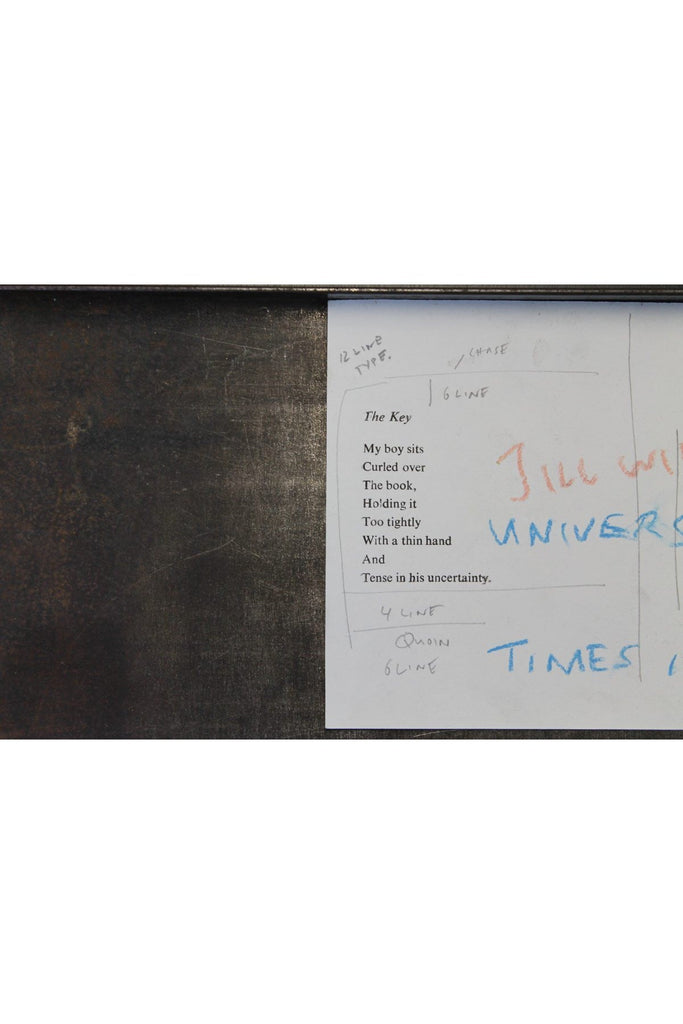 12 LINE
TYPE.
CHASE
6 LINE
The Key
My boy sits
Curled over
The book,
Holding it
Too tightly
With a thin hand
And
Tense in his uncertainty.
JILL
UNIVERS
TIMES
4 LINE
QUOIN
6 LINE